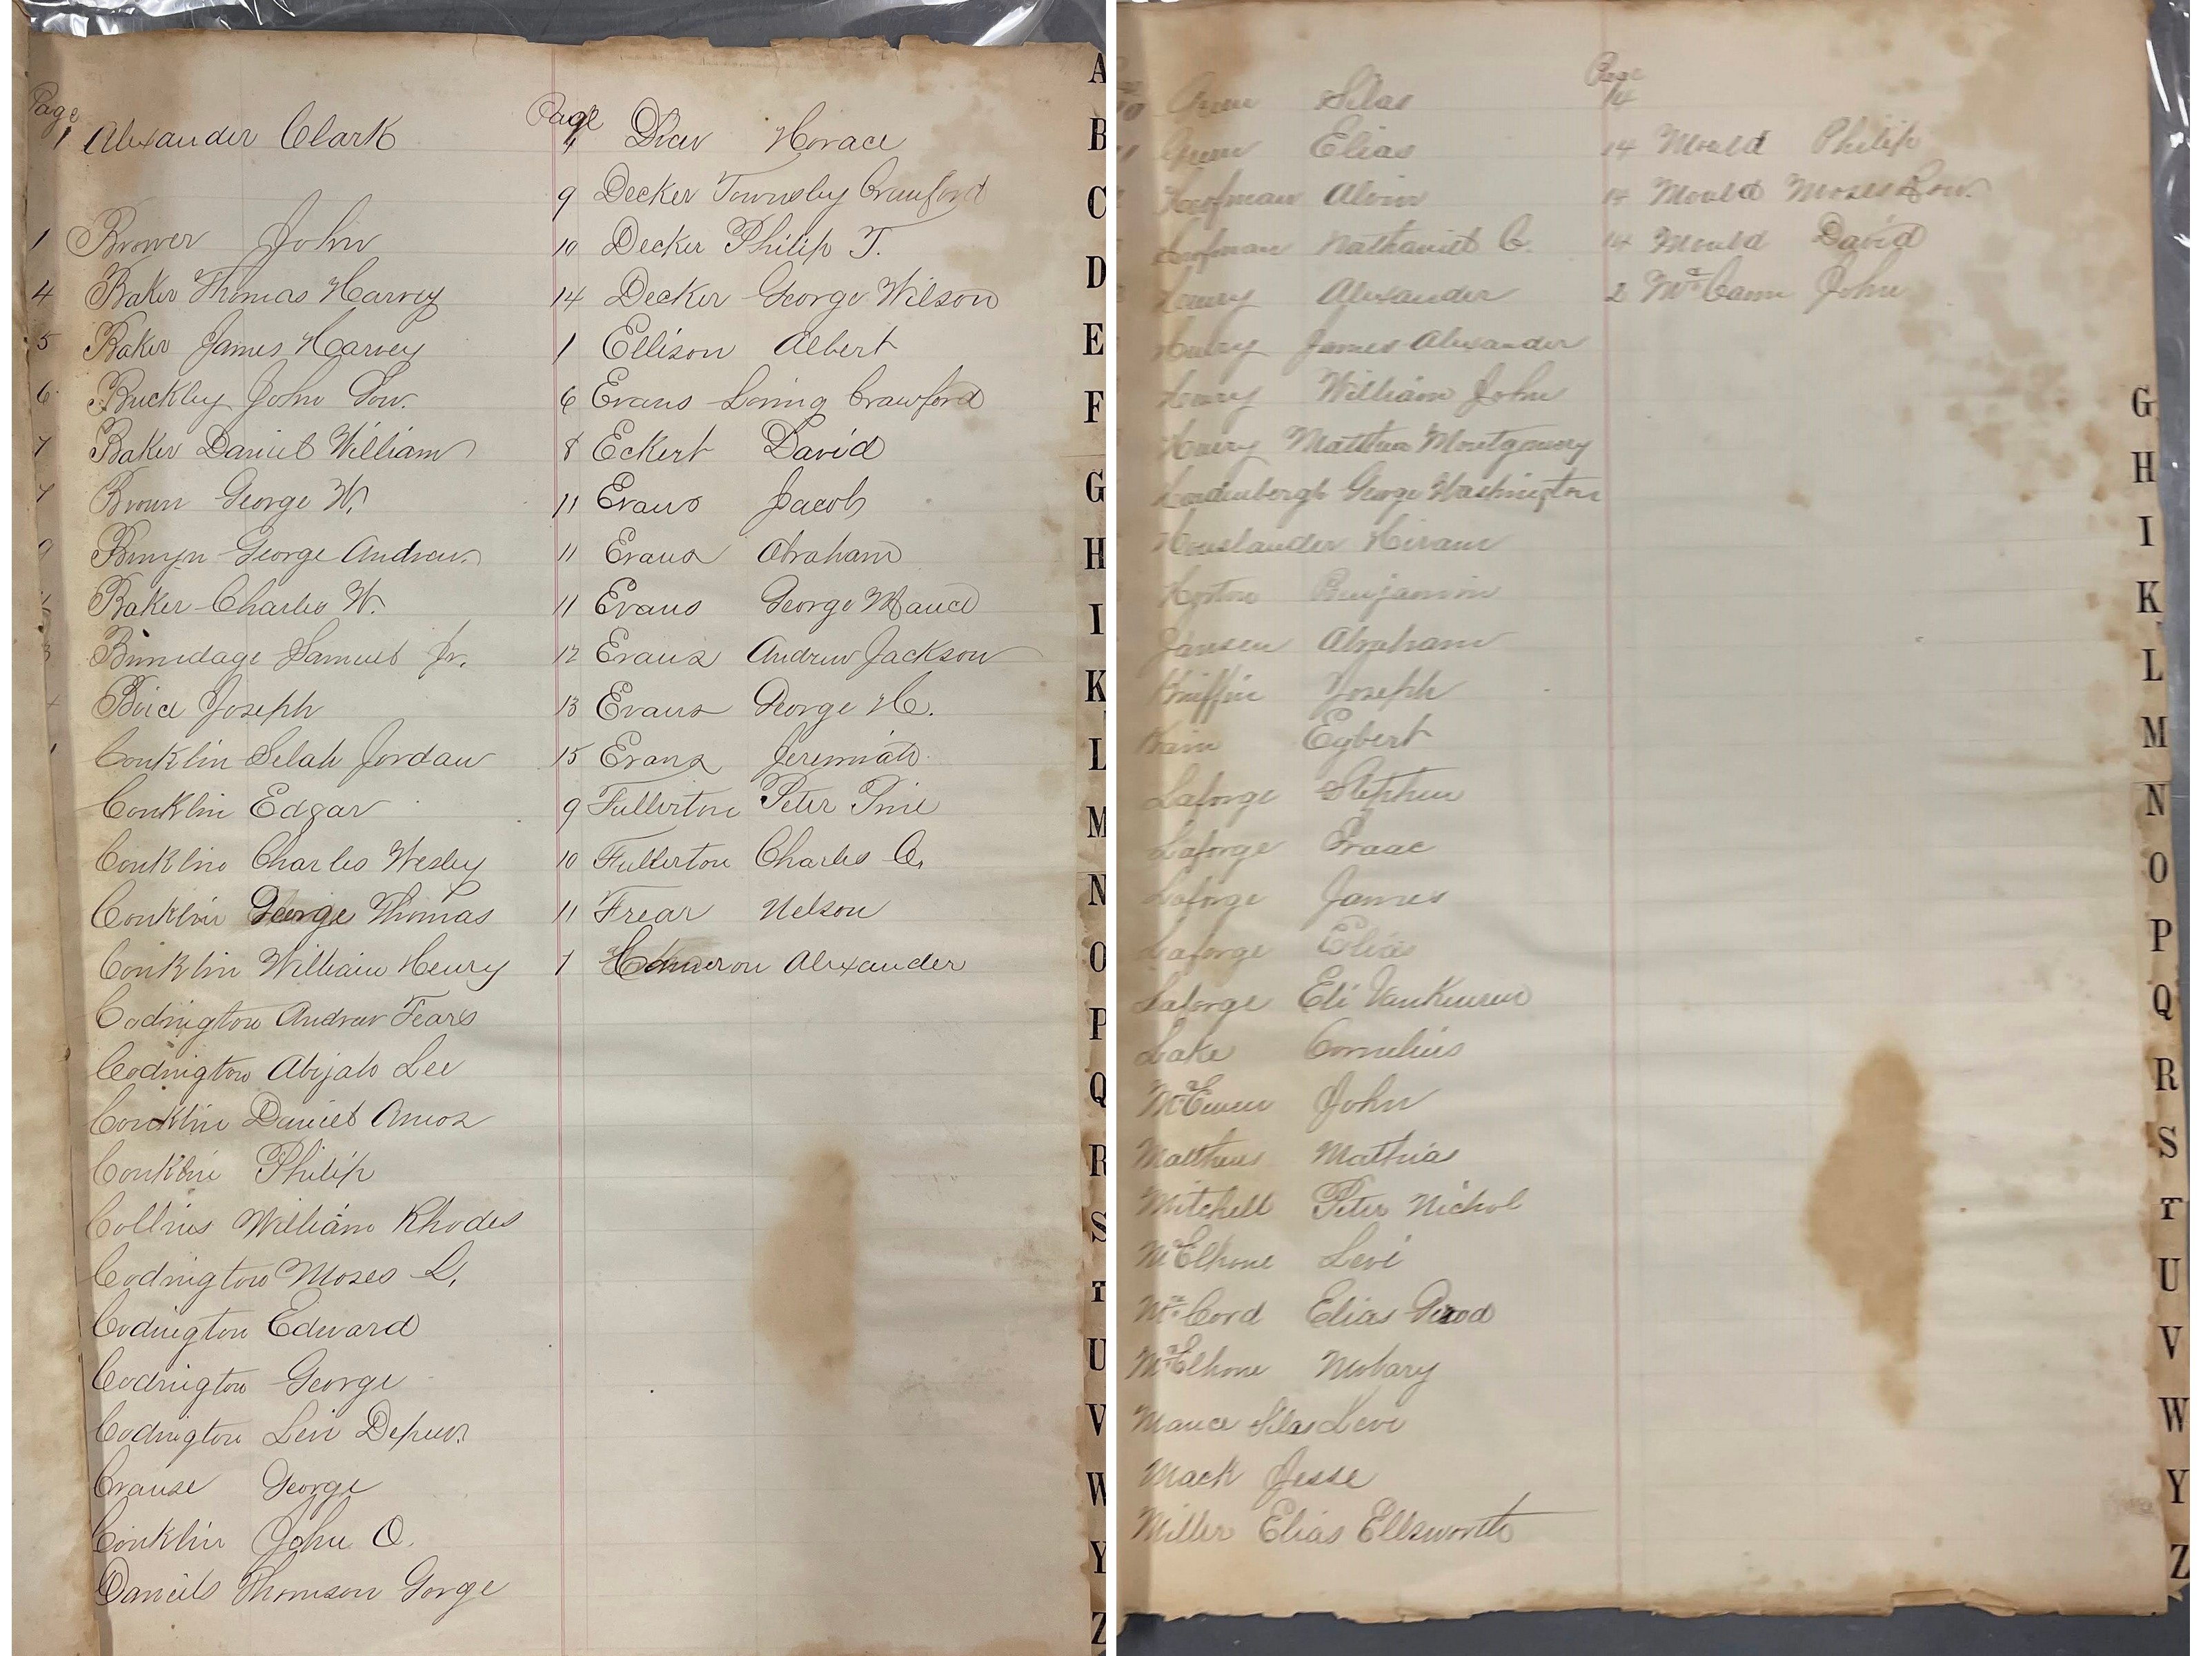 Page
1 Alexander Clark
1 Brower John
4 Baker Thomas Harvey
5 Baker James Harvey
6 Buckley John Gow.
7 Baker Daniel William
7 Brown George W.
9 Bruyn George Andrew
Baker Charles W.
Brundage Samuel Jr.
Boice Joseph
Conklin Selah Jordan
Conklin Edgar
Conklin Charles Wesley
Conklin George Thomas
Conklin William Henry
Codington Andrew Fears
Codington Abijah Lee
Conklin Daniel Amos
Conklin Philip
Collins William Rhodes
Codington Moses L.
Codington Edward
Codington George
Codington Levi Depew
Crause George
Conklin John O.
Daniels Thomson Gorge
Page
4 Drew Horace
9 Decker Townsley Crawford
10 Decker Philip T.
14 Decker George Wilson
1 Ellison Albert
6 Evans Loring Crawford
8 Eckert David
11 Evans Jacob
11 Evans Abraham
11 Evans George Mance
12 Evans Andrew Jackson
13 Evans George H.
15 Evans Jeremiah
9 Fullerton Peter Pine
10 Fullerton Charles
11 Frear Nelson
1 Alexander
A
B
C
D
E
F
G
H
I
K
L
M
N
O
P
Q
R
S
T
U
V
W
Y
Z
Silas
Elias
Alvin
Nathaniel C.
Henry Alexander
Henry James Alexander
Henry William John
Henry Matthew Montgomery
Hardenbergh George Washington
Houslander Hiram
Horton Benjamin
Jansen Abraham
Kniffin Joseph
Kain Egbert
Laforge Stephen
Laforge Isaac
Laforge James
Laforge Elias
Laforge Eli VanKeuren
Lake Cornelius
McEwen John
Matthews Mathias
Mitchell Peter Nichol
McElhone Levi
Mc.Cord Elias
McElhone Mobary
Mance Silas Levi
Mack Jesse
Miller Elias Ellsworth
Page
14
14 Mould Philip
14 Mould Moses Gow.
14 Mould David
2 Mc.Cann John
G
H
I
K
L
M
N
O
P
Q
R
S
T
U
V
W
Y
Z